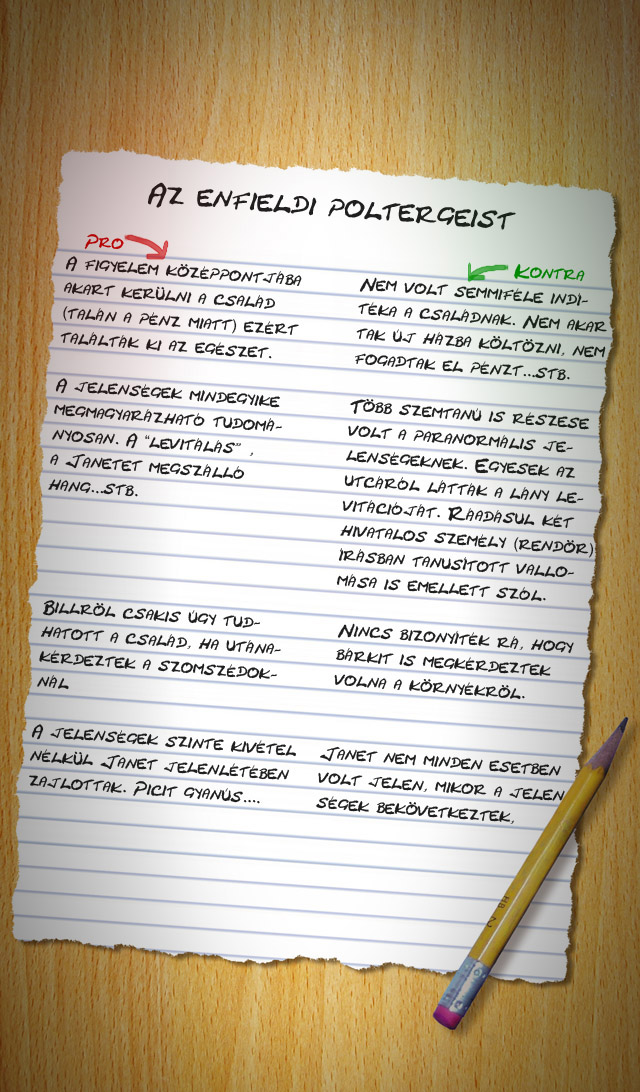 AZ ENFIELDI POLTERGEIST
PRO
A FIGYELEM KÖZÉPPONTJÁBA
AKART KERÜLNI A CSALÁD
(TALÁN A PÉNZ MIATT) EZÉRT
TALÁLTÁK KI AZ EGÉSZET.
A JELENSÉGEK MINDEGYIKE
MEGMAGYARÁZHATÓ TUDOMÁ-
NYOSAN. A "LEVITÁLÁS" ,
A JANETET MEGSZÁLLÓ
HANG...STB.
BILLRŐL CSAKIS ÚGY TUD-
HATOTT A CSALÁD, HA UTÁNA-
KÉRDEZTEK A SZOMSZÉDOK-
NÁL
A JELENSÉGEK SZINTE KIVÉTEL
NÉLKÜL JANET JELENLÉTÉBEN
ZAJLOTTAK. PICIT GYANÚS....
KONTRA
NEM VOLT SEMMIFÉLE INDÍ-
TÉKA A CSALÁDNAK. NEM AKAR
TAK ÚJ HÁZBA KÖLTÖZNI, NEM
FOGADTAK EL PÉNZT...STB.
TÖBB SZEMTANÚ IS RÉSZESE
VOLT A PARANORMÁLIS JE-
LENSÉGEKNEK. EGYESEK AZ
UTCÁRÓL LÁTTÁK A LÁNY LE-
VITÁCIÓJÁT. RÁADÁSUL KÉT
HIVATALOS SZEMÉLY (RENDŐR)
ÍRÁSBAN TANÚSÍTOTT VALLO-
MÁSA IS EMELLETT SZÓL.
NINCS BIZONYÍTÉK RÁ, HOGY
BÁRKIT IS MEGKÉRDEZTEK
VOLNA A KÖRNYÉKRŐL.
JANET NEM MINDEN ESETBEN
VOLT JELEN, MIKOR A JELEN
SÉGEK BEKÖVETKEZTEK,
HB 2